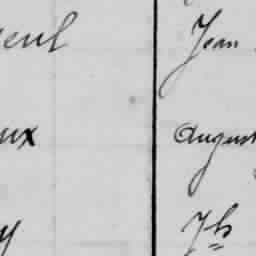 eul Jean
ux August
y Jh